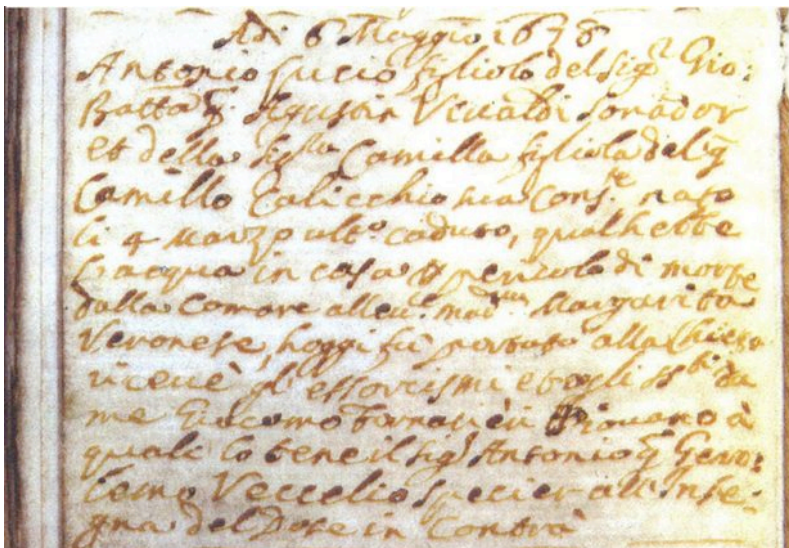 Adi 6 Maggio 1678
Antonio Lucio figliolo del Sig.r Gio:
Batta q. Agustin Vivaldi Sonador
et della Sig.ra Camilla figliola del q.
Camillo Calicchio sua Cons.te nato
li 4 Marzo ult.o caduto, qual hebbe
l'acqua in casa p pericolo di morte
dalla Comare allev.e mad.a Margarita
Veronese, hoggi fù portato alla Chiesa
riceuè gl'essorcismi et ogli SS.ti da
me Giacomo Fornacieri Piouano à
quali lo tene il Sig.r Antonio q. Gero:
lemo Veccelio specier all'Inse:
gna del Dose in Contrà